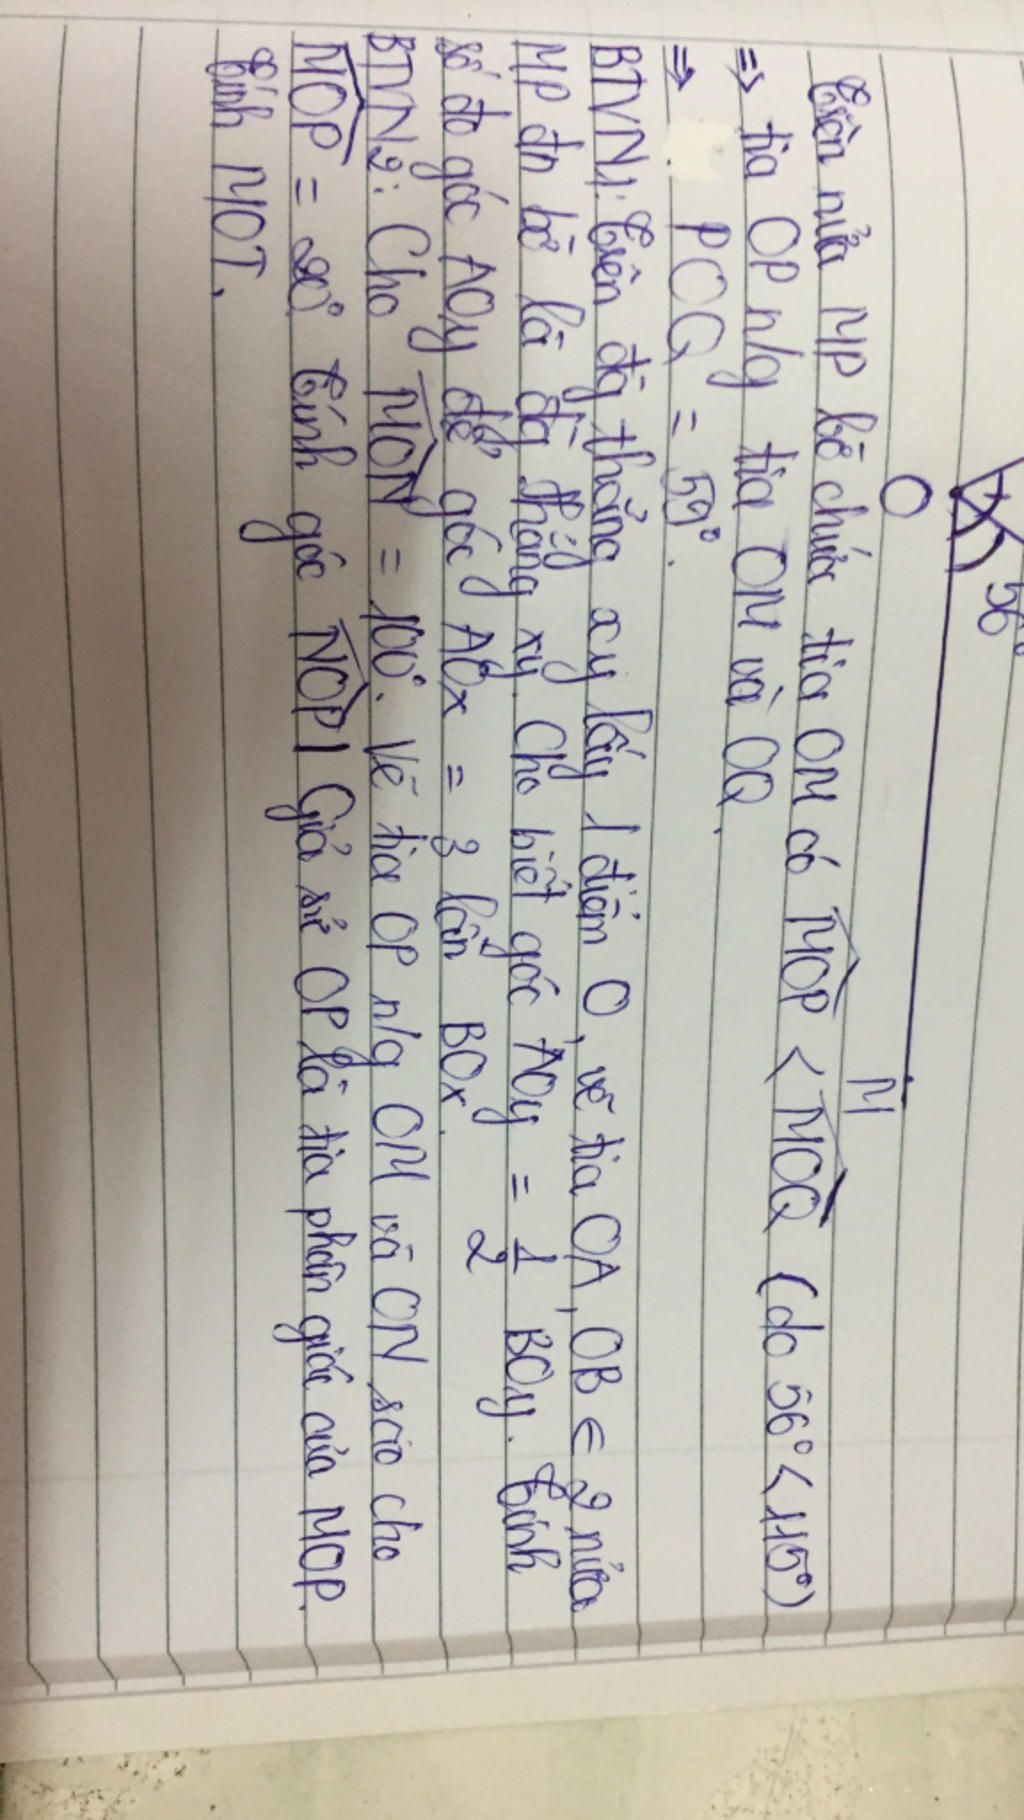 O
56°
M
Trên nửa MP bờ chứa tia OM có MOP < MOQ (do 56° < 115°)
=> tia OP n/g tia OM và OQ.
=> POQ = 59°.
BTVN1: Trên đg thẳng xy lấy 1 điểm O, vẽ tia OA, OB ∈ 2 nửa
MP đn bờ là đg thẳng xy. Cho biết góc AOy = 1/2 BOy. Tính
số đo góc AOy để góc AOx = 3 lần BOx.
BTVN2: Cho MON = 100°. Vẽ tia OP n/g OM và ON sao cho
MOP = 20°. Tính góc NOP. Giả sử OP là tia phân giác của MOP.
Tính MOT.